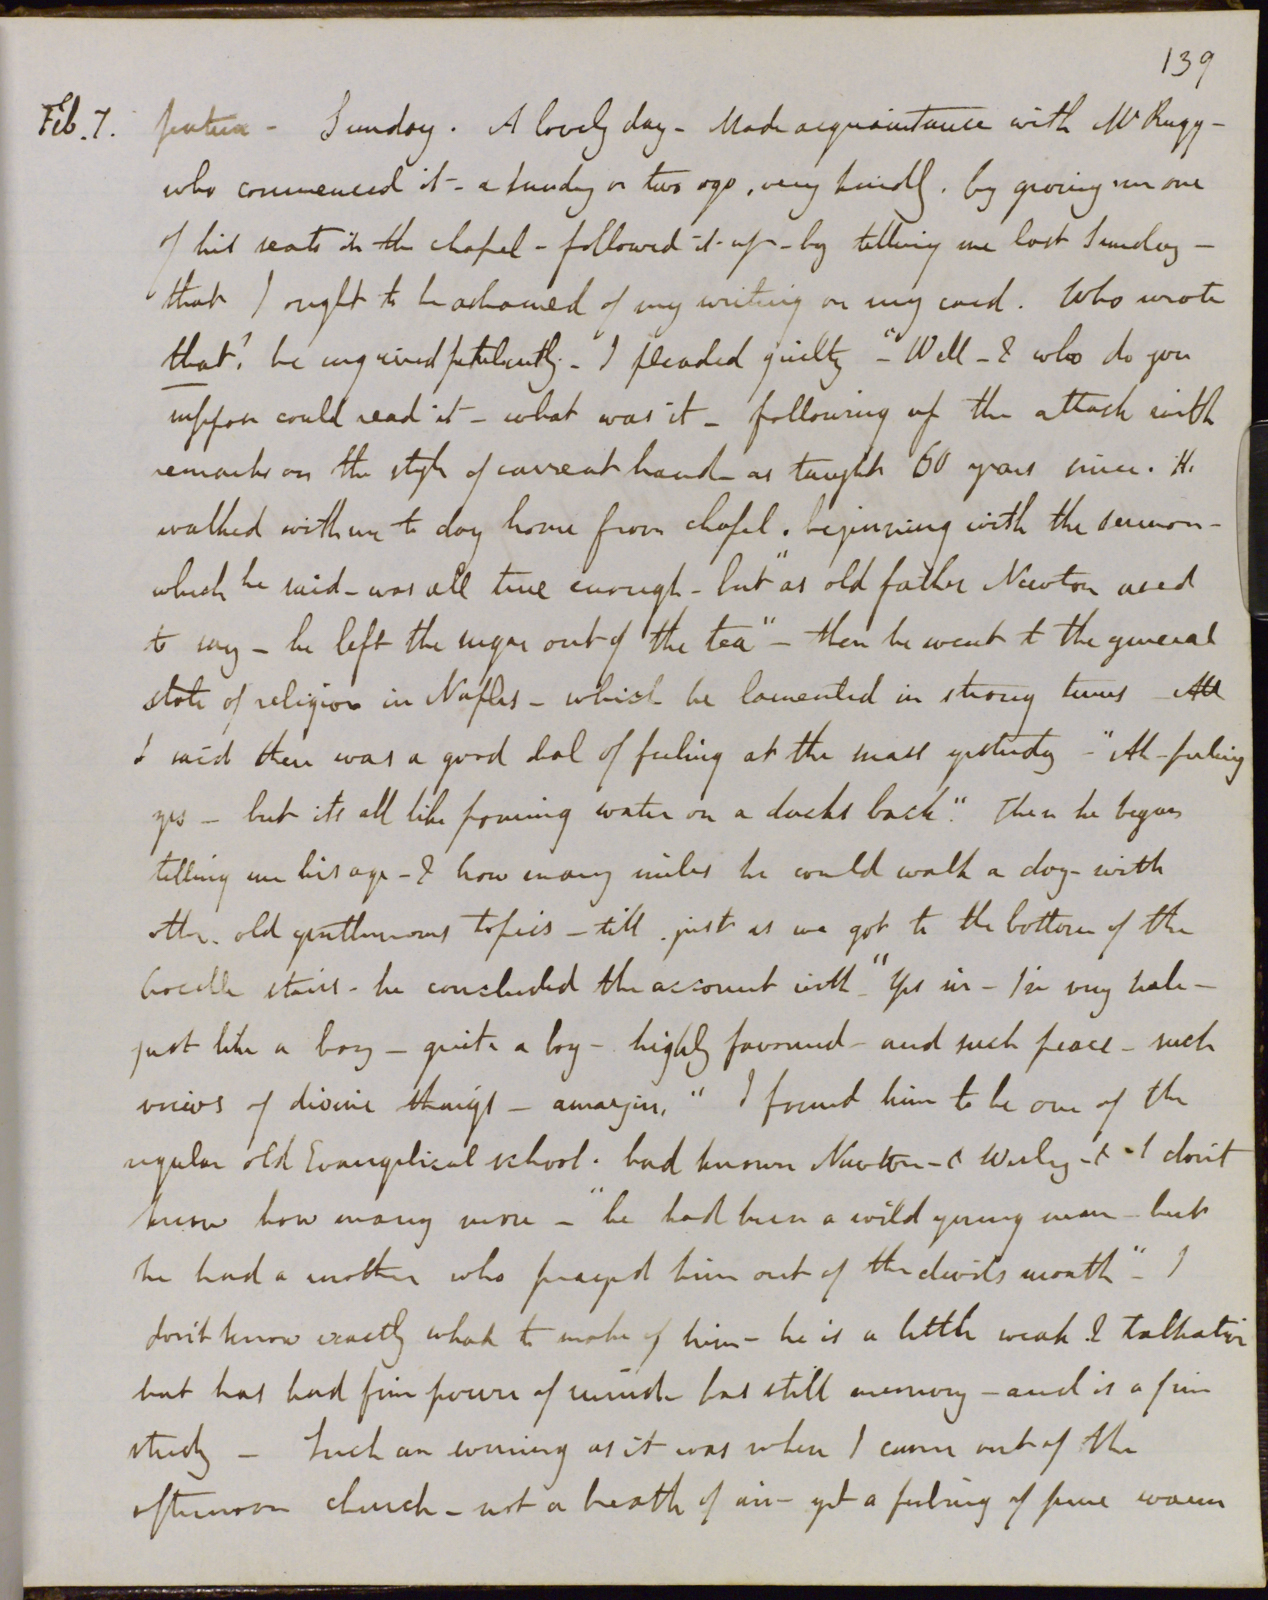 139
Feb. 7. feature - Sunday. A lovely day - Made acquaintance with Mr Rugg -
who commenced it - a Sunday or two ago, very kindly, by giving me one
of his seats in the chapel - followed it up - by telling me last Sunday -
that I ought to be ashamed of my writing on my card. Who wrote
that? he enquired petulantly. - I pleaded guilty - "Well - & who do you
suppose could read it - what was it - following up the attack with
remarks on the style of current hand as taught 60 years since. He
walked with me to day home from chapel. beginning with the sermon -
which he said - was all true enough - but "as old father Newton used
to say - he left the sugar out of the tea" - then he went to the general
state of religion in Naples - which he lamented in strong terms - All
I said there was a good deal of feeling at the mass yesterday - "Ah - feeling
yes - but its all like pouring water on a ducks back". Then he began
telling me his age - & how many miles he could walk a day - with
other old gentlemans topics - till just as we got to the bottom of the
stairs - he concluded the account with - "Yes sir - I'm very hale -
just like a boy - quite a boy - highly favoured - and such peace - such
views of divine things - amazin." I found him to be one of the
regular old Evangelical school. had known Newton - & Wesley - & - I don't
know how many more - "he had been a wild young man - but
he had a mother who prayed him out of the devils mouth" - I
don't know exactly what to make of him - he is a little weak & talkative
but has had fine power of mind - has still memory - and is a fine
study - Such an evening as it was when I came out of the
afternoon church - not a breath of air - yet a feeling of pure warm